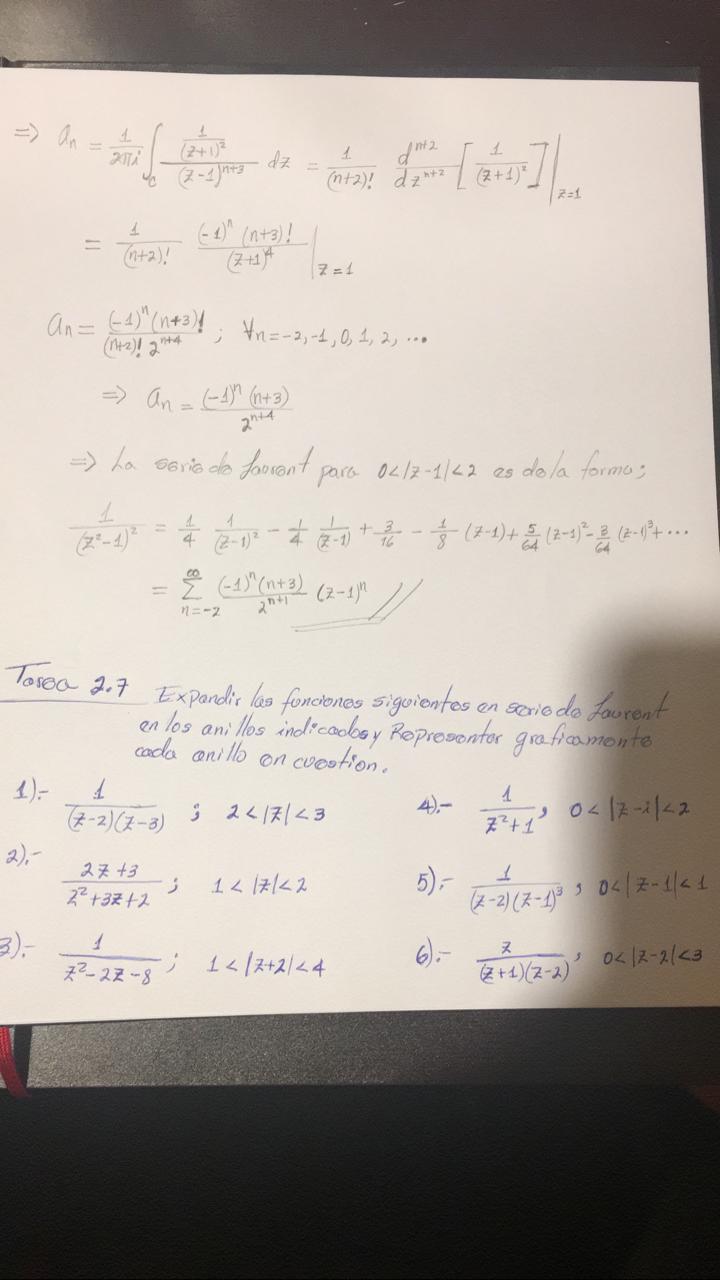 => aₙ = 1/(2πi) ∫_C (1/(z+1)²)/((z-1)ⁿ⁺³) dz = 1/(n+2)! dⁿ⁺²/dzⁿ⁺² [1/(z+1)²] |_{z=1}
= 1/(n+2)! ((-1)ⁿ (n+3)!)/(z+1)⁴ |_{z=1}
aₙ = ((-1)ⁿ(n+3)!)/((n+2)! 2ⁿ⁺⁴) ; ∀n=-2,-1,0,1,2,...
=> aₙ = ((-1)ⁿ(n+3))/2ⁿ⁺⁴
=> La serie de Laurent para 0<|z-1|<2 es de la forma;
1/(z²-1)² = 1/4 1/(z-1)² - 1/4 1/(z-1) + 3/16 - 1/8 (z-1) + 5/64 (z-1)² - 3/64 (z-1)³ + ...
= ∑_{n=-2}^{∞} ((-1)ⁿ(n+3))/2ⁿ⁺¹ (z-1)ⁿ
Tarea 2.7 Expandir las funciones siguientes en serie de Laurent
en los anillos indicados y Representar graficamente
cada anillo en cuestion.
1).- 1/((z-2)(z-3)) ; 2<|z|<3
2).- (2z+3)/(z²+3z+2) ; 1<|z|<2
3).- 1/(z²-2z-8) ; 1<|z+2|<4
4).- 1/(z²+1) , 0<|z-i|<2
5).- 1/((z-2)(z-1)³) , 0<|z-1|<1
6).- z/((z+1)(z-2)) , 0<|z-2|<3